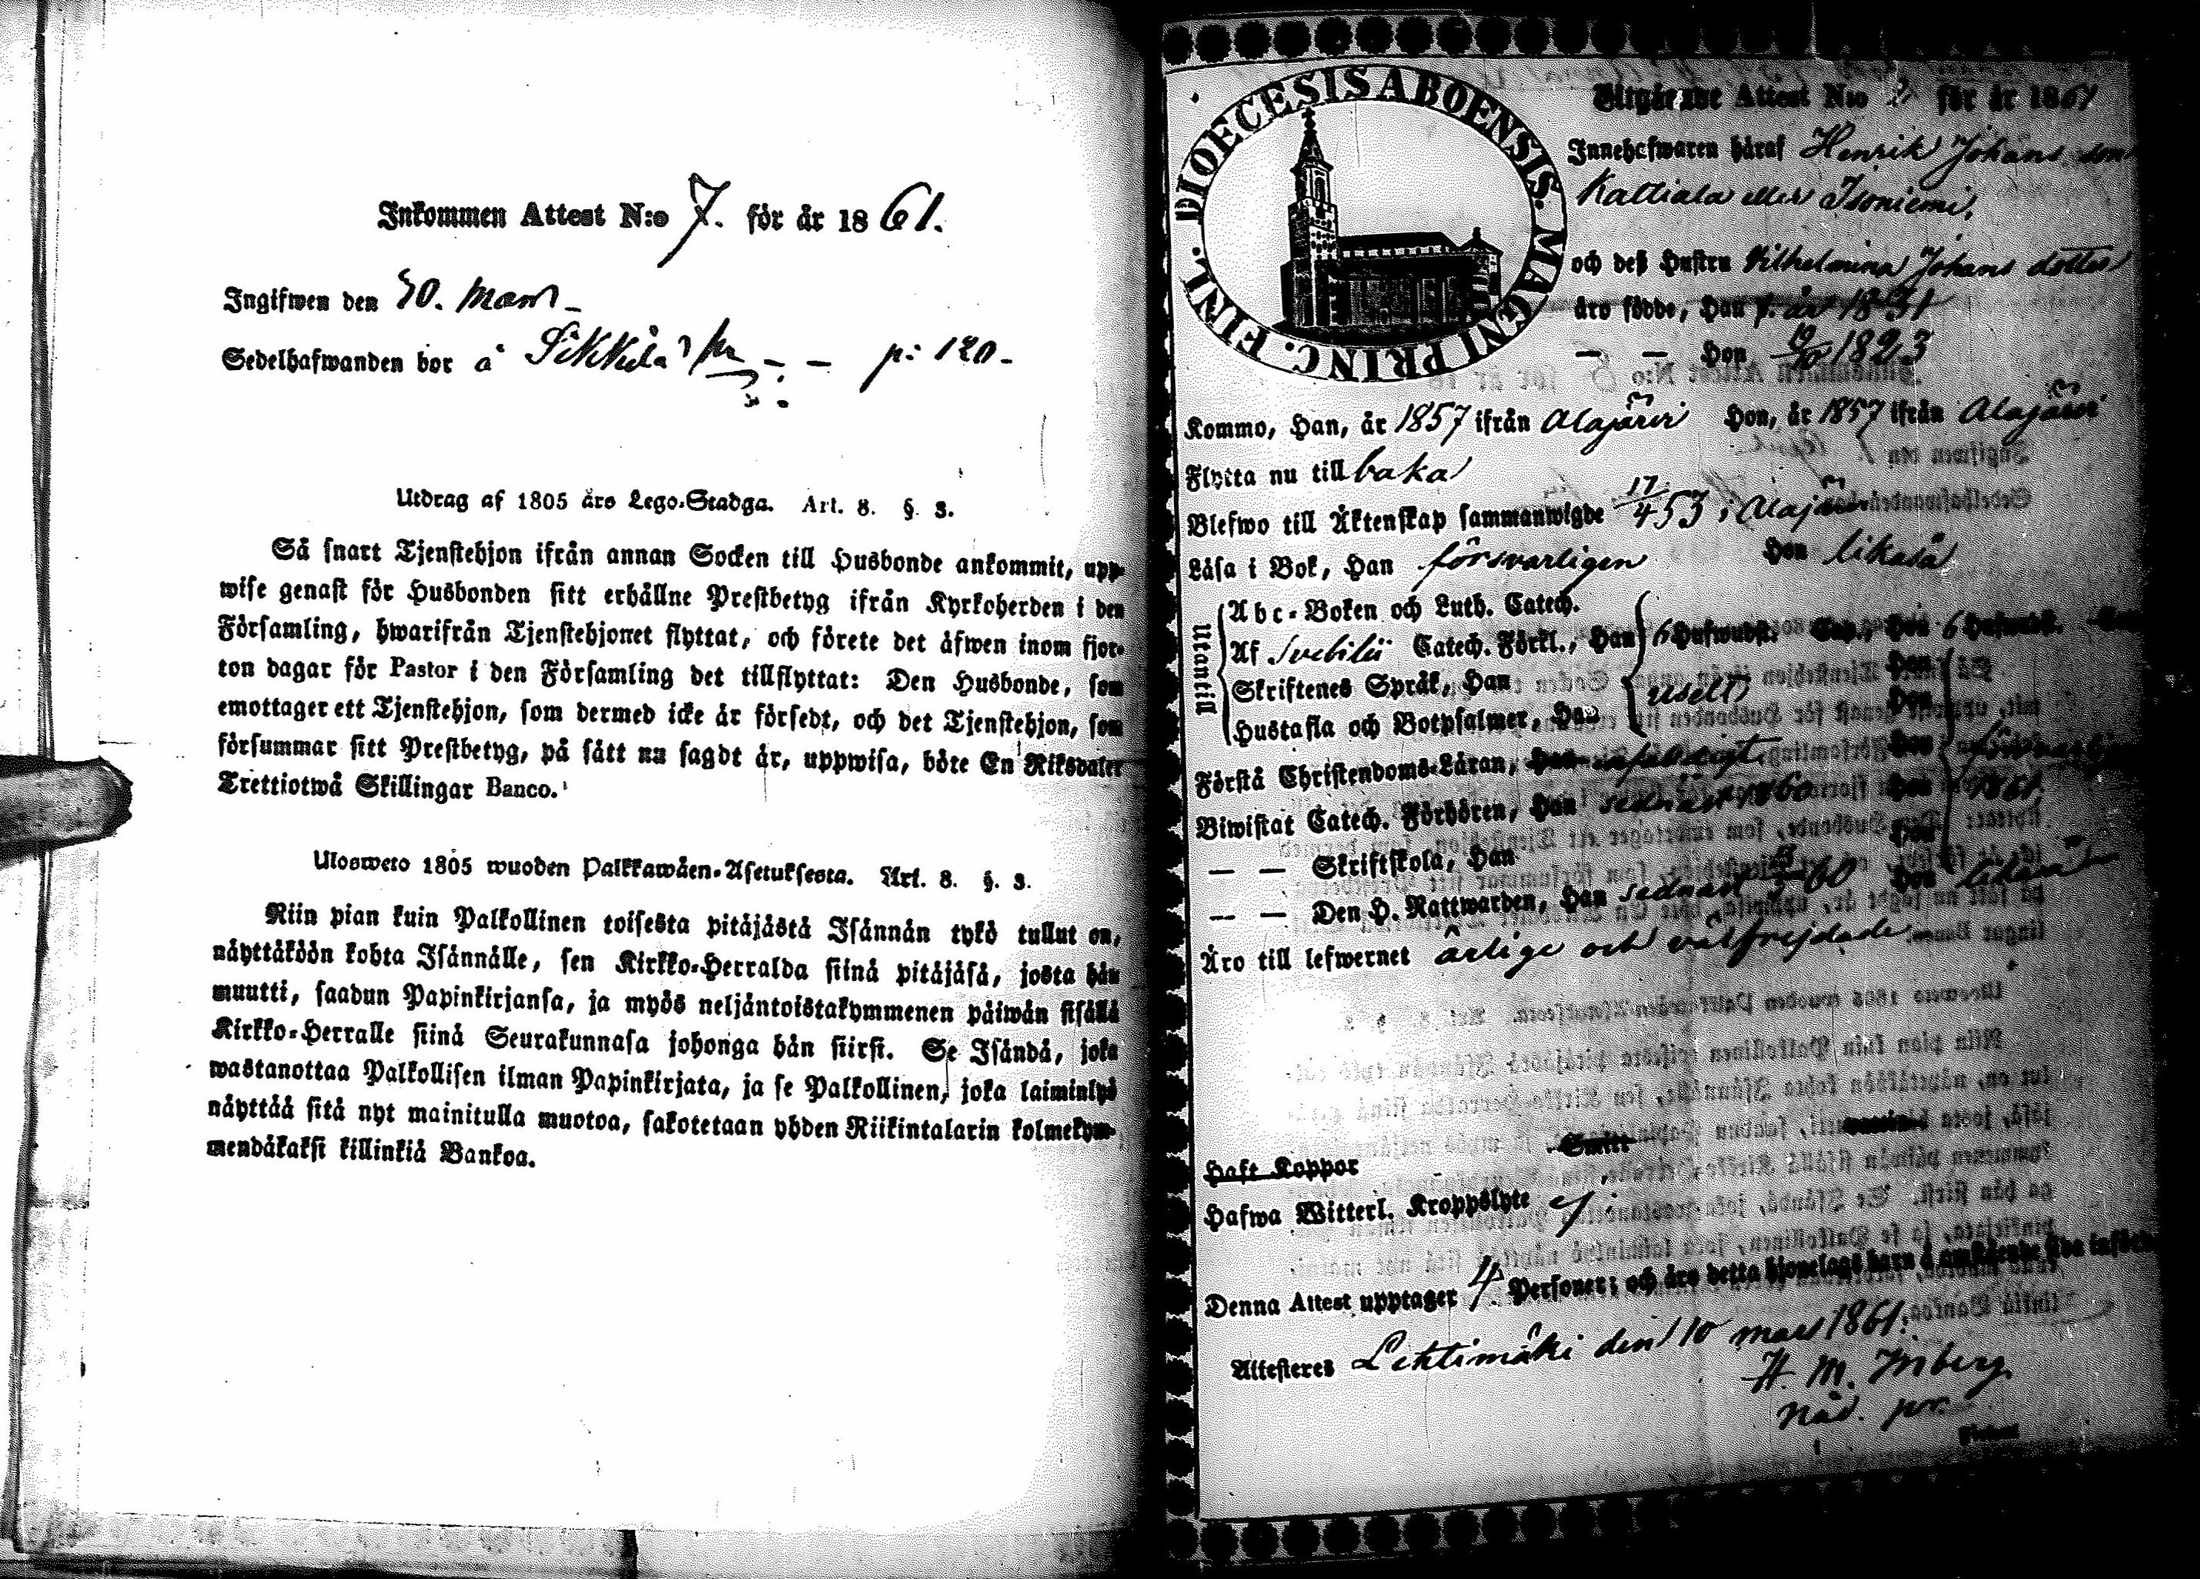 Inkommen Attest N:o 7. för år 1861.
Ingifwen den 30. Mars
Sedelhafwanden bor å p: 120
Utdrag af 1805 års Lego-Stadga. Art. 8. §. 3.
Så snart Tjenstehjon ifrån annan Socken till Husbonde ankommit, upp-
wise genast för Husbonden sitt erhållne Prestbetyg ifrån Kyrkoherden i den
Församling, hwarifrån Tjenstehjonet flyttat, och förete det äfwen inom fjor-
ton dagar för Pastor i den Församling det tillflyttat: Den Husbonde, som
emottager ett Tjenstehjon, som dermed icke är försedt, och det Tjenstehjon, som
försummar sitt Prestbetyg, på sätt nu sagdt är, uppwisa, böte En Riksdaler
Trettiotwå Skillingar Banco.
Ulosweto 1805 wuoden Palkkawäen-Asetuksesta. Art. 8. §. 3.
Niin pian kuin Palkollinen toisesta pitäjästä Isännän tykö tullut on,
näyttäköön kohta Isännälle, sen Kirkko-Herralda siinä pitäjäsä, josta hän
muutti, saadun Papinkirjansa, ja myös neljäntoistakymmenen päiwän sisällä
Kirkko-Herralle siinä Seurakunnasa johonga hän siirsi. Se Isändä, joka
wastanottaa Palkollisen ilman Papinkirjata, ja se Palkollinen, joka laiminlyö
näyttää sitä nyt mainitulla muotoa, sakotetaan yhden Riikintalarin kolmekym-
mendäkaksi killinkiä Bankoa.
DIOECESIS ABOENSIS. MAGNI PRINC. FINL.
Utgående Attest N:o för år 1861
Innehafwaren häraf Henrik Johans son
Kattiala eller Isoniemi,
och deß Hustru Vilhelmina Johans dotter
äro födde, Han f. år 1831
— — Hon 1823
Kommo, Han, år 1857 ifrån Alajärvi Hon, år 1857 ifrån Alajärvi
Flytta nu till baka
Blefwo till Äktenskap sammanwigde 17/4 53 i Alajärvi
Läsa i Bok, Han försvarligen Hon likaså
Utantill
Abc-Boken och Luth. Catech.
Af Svebilii Catech. Förkl., Han 6 Hufwudst. Cap., Hon 6 Hufwudst.
Skriftenes Språk, Han uselt Hon
Hustafla och Botpsalmer, Han Hon
Förstå Christendoms-Läran, Han Hon
Biwistat Catech. Förhören, Han sednast 1860 Hon 1861.
— — Skriftskola, Han Hon
— — Den H. Nattwarden, Han sednast 60 Hon
Äro till lefwernet ärlige och välfrejdade
Haft Koppor
Hafwa Witterl. Kroppslyte ej
Denna Attest upptager 4 Personer; och äro detta hjonelags barn å omstående sida införde
Attesteres Lehtimäki den 10 mars 1861.
H. M. Imberg
Nåd. pr.